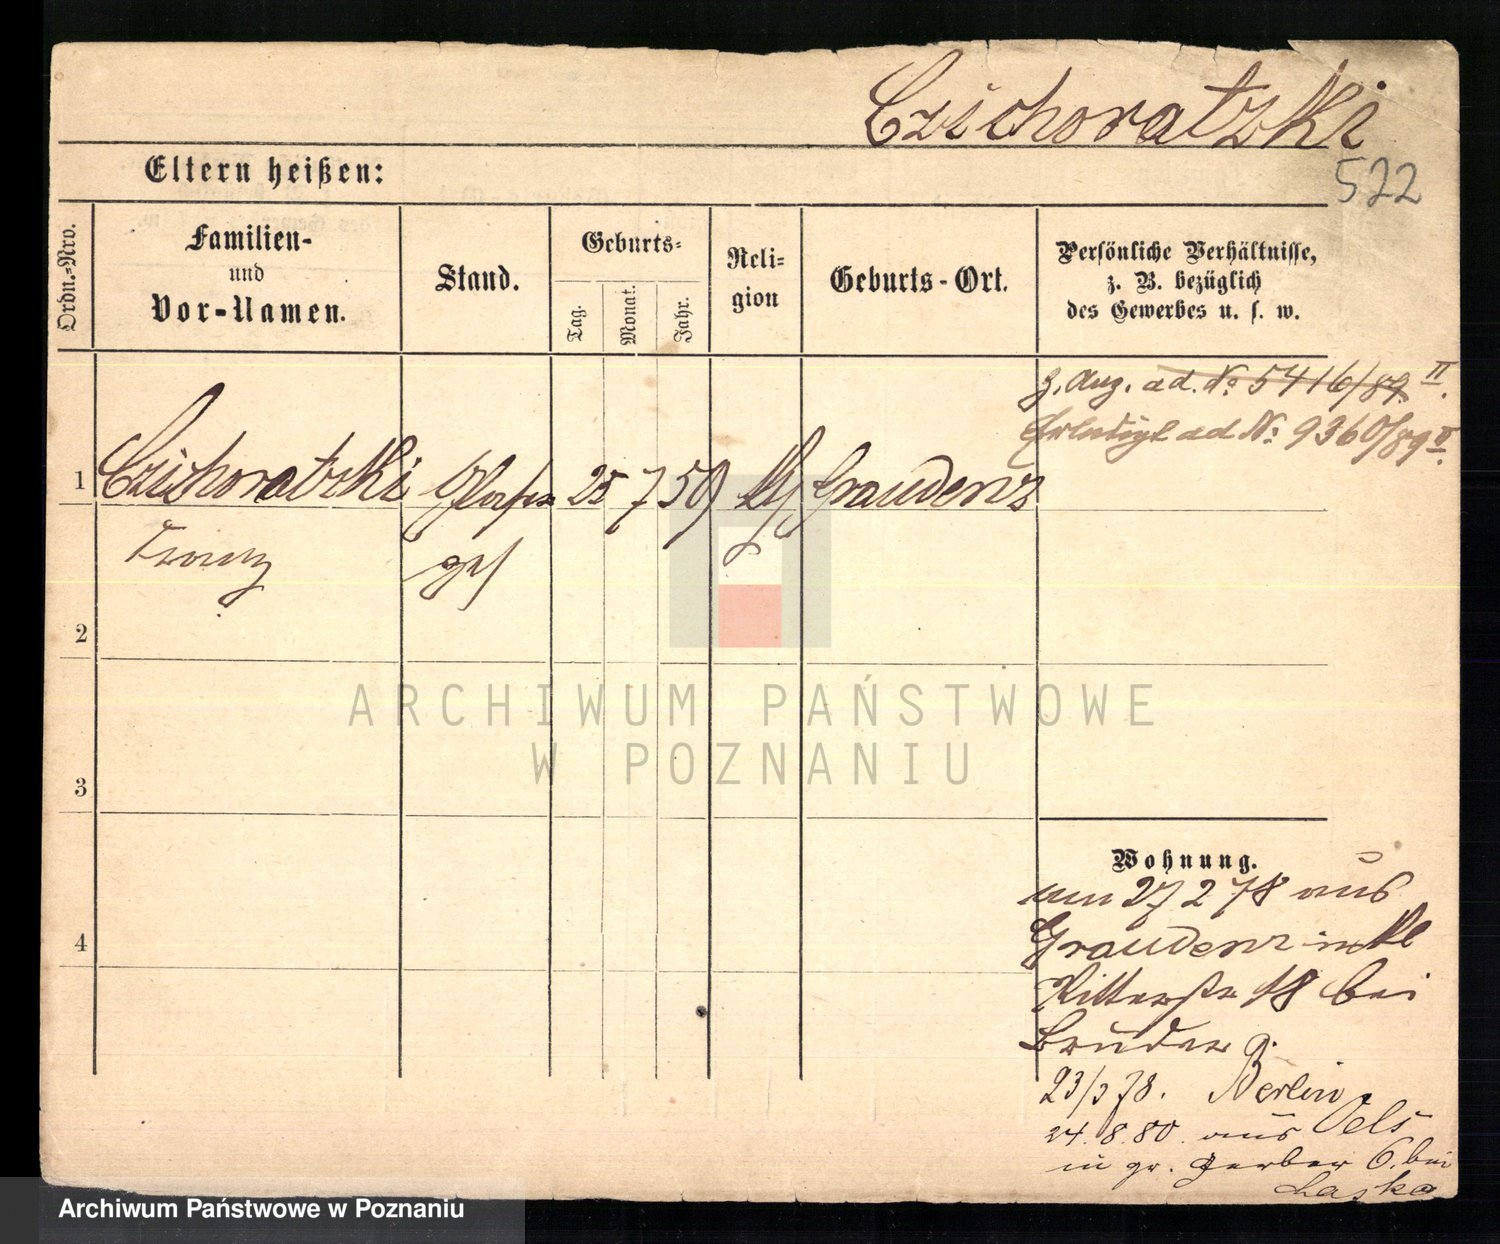 Czichoratzki
522
Eltern heißen:
Ordn.-Nro.
Familien-
und
Vor-Namen.
Stand.
Geburts-
Tag.
Monat.
Jahr.
Reli-
gion
Geburts-Ort.
Persönliche Verhältnisse,
z. B. bezüglich
des Gewerbes u. s. w.
z. Anz. ad. No: 5416/89 II.
Erledigt ad No: 9360/89 II.
1 Czichoratzki 25 7 59 Graudenz
Franz
2
3
4
ARCHIWUM PAŃSTWOWE
W POZNANIU
Wohnung.
27 2 78 aus
Graudenz in Kl
Ritterstr 18 bei
Bruder
23/3 78. n. Berlin.
24.8.80. aus Oels
in gr. Gerber 6. bei
Laska
Archiwum Państwowe w Poznaniu